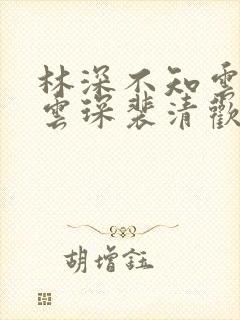 林深不知雲
雲琛裴清歡
胡增鈺